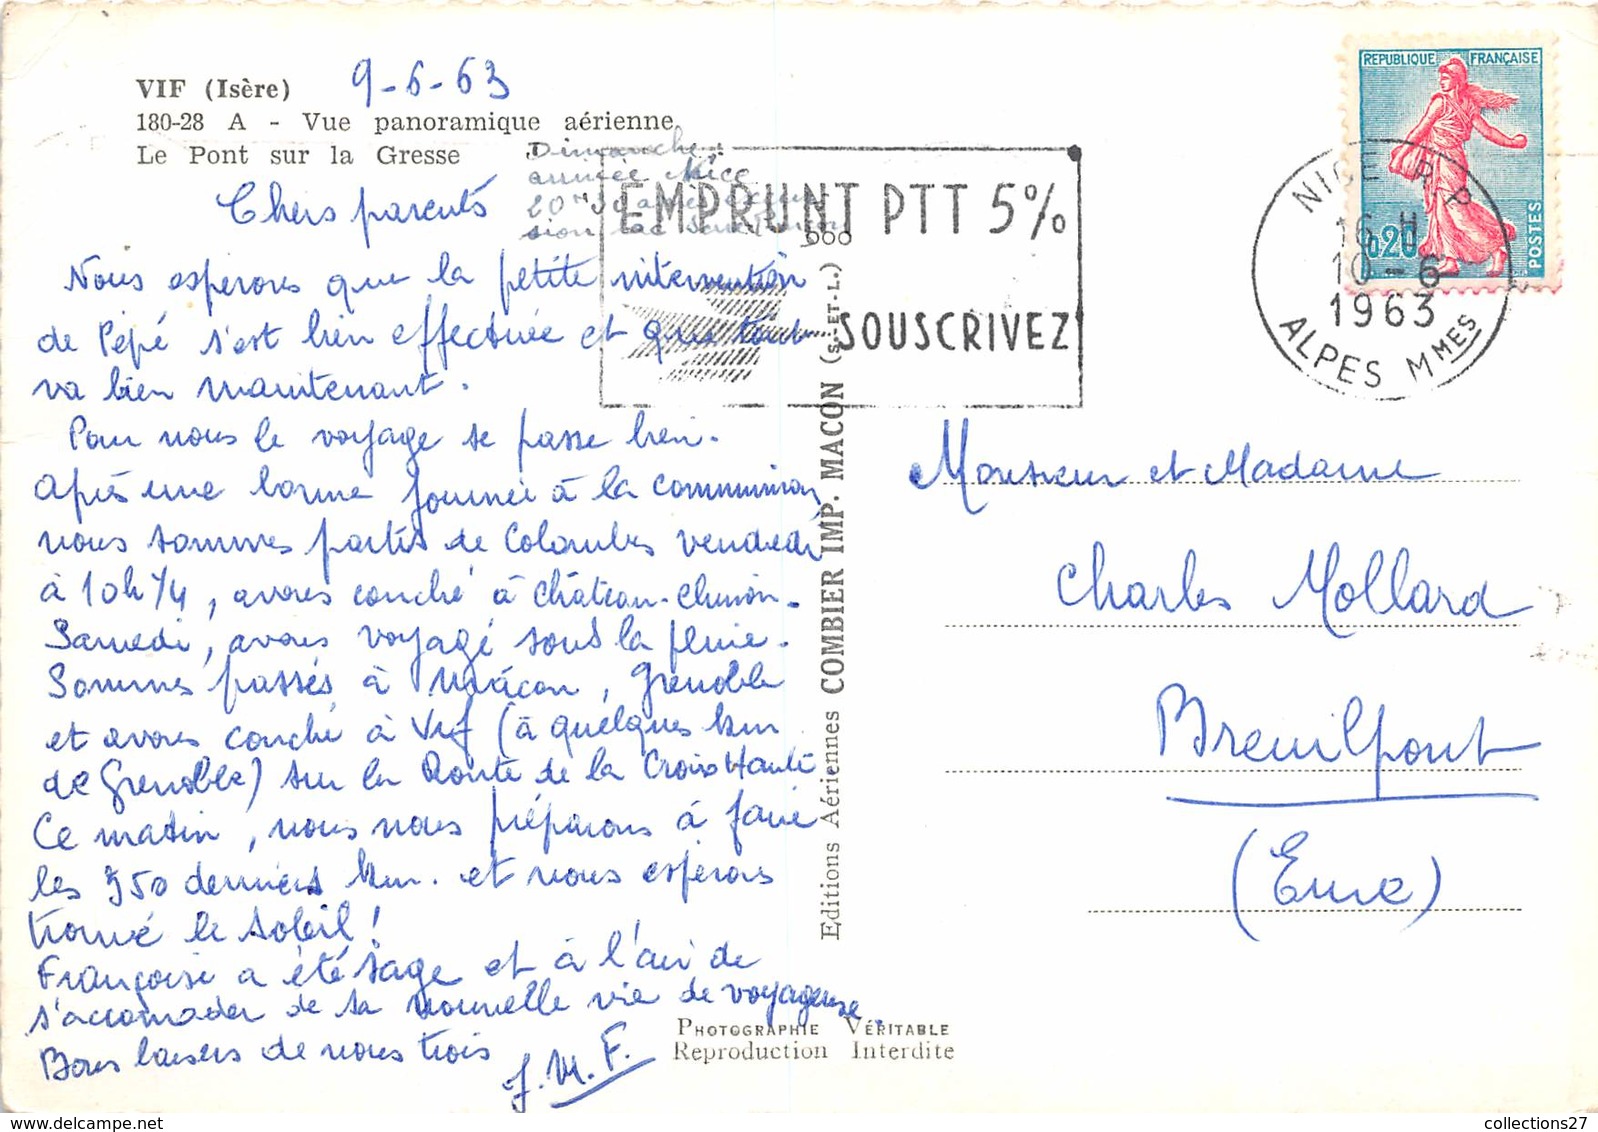 VIF (Isère) 9-6-63
180-28 A - Vue panoramique aérienne
Le Pont sur la Gresse
Dimanche
arrivée Nice
20
sion lac
Chers parents
Nous espérons que la petite intervention
de Pépé s'est bien effectuée et que tout
va bien maintenant.
Pour nous le voyage se passe bien.
Après une bonne journée à la communion
nous sommes partis de Colombes vendredi
à 10h 1/4, avons couché à Château-Chinon.
Samedi, avons voyagé sous la pluie.
Sommes passés à Mâcon, Grenoble
et avons couché à Vif (à quelques km
de Grenoble) sur la Route de la Croix Haute
Ce matin, nous nous préparons à faire
les 350 derniers km. et nous espérons
trouvé le soleil!
Françoise a été sage et à l'air de
s'accomoder de sa nouvelle vie de voyageuse.
Bons baisers de nous trois
J.M.F.
EMPRUNT PTT 5%
SOUSCRIVEZ
Editions Aériennes COMBIER IMP. MACON (S.-ET-L.)
PHOTOGRAPHIE VÉRITABLE
Reproduction Interdite
REPUBLIQUE FRANÇAISE
0,20
POSTES
NICE R.P
16 H
10-6
1963
ALPES MMES
Monsieur et Madame
Charles Mollard
Breuilpont
(Eure)
collections27